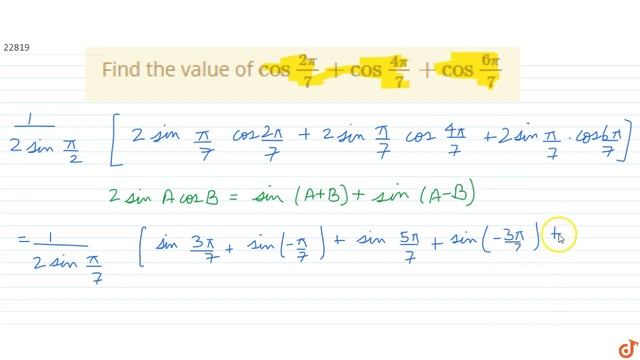 22819
Find the value of cos 2π/7 + cos 4π/7 + cos 6π/7
1/(2 sin π/2) [ 2 sin π/7 cos 2π/7 + 2 sin π/7 cos 4π/7 + 2 sin π/7 . cos 6π/7 ]
2 sin A cos B = sin (A+B) + sin (A-B)
= 1/(2 sin π/7) [ sin 3π/7 + sin (-π/7) + sin 5π/7 + sin (-3π/7) +